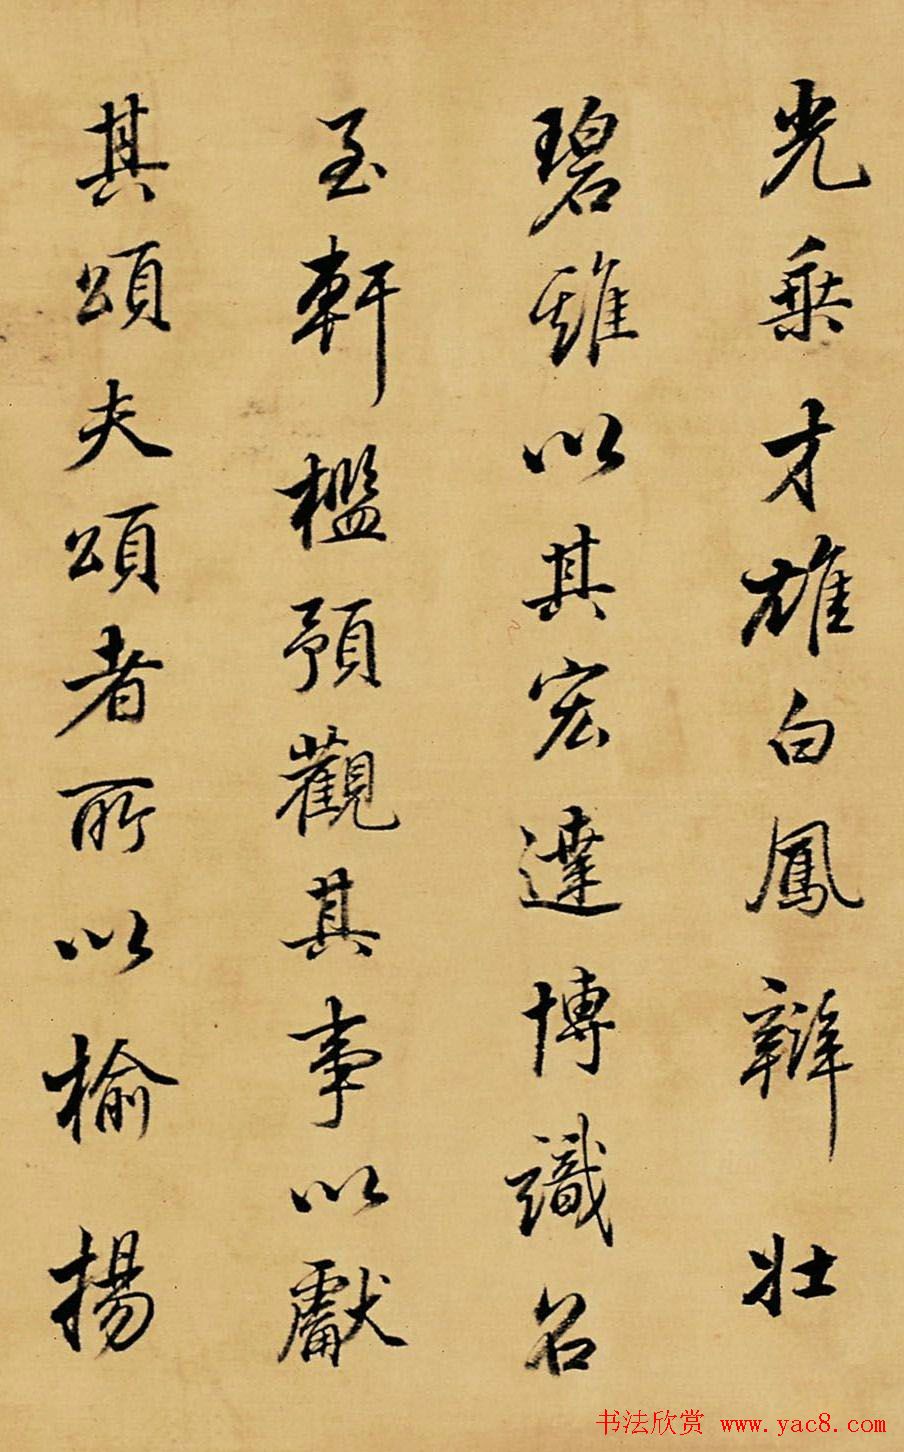 光乘才雄白鳳辯壯
碧雞以其宏達博識召
至軒檻預觀其事以獻
其頌夫頌者所以榆揚
书法欣赏 www.yac8.com